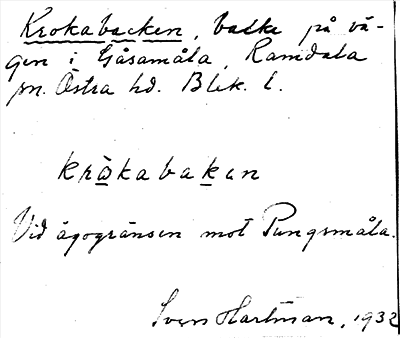 Krokabacken, backe på vä-
gen i Gåsamåla, Ramdala
sn. Östra hd. Blek. l.
kròkabakan
Vid ägogränsen mot Pungsmåla.
Sven Hartman, 1932